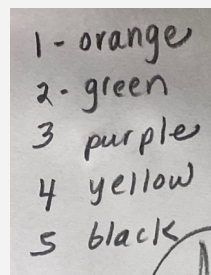 1 - orange
2 - green
3 purple
4 yellow
5 black